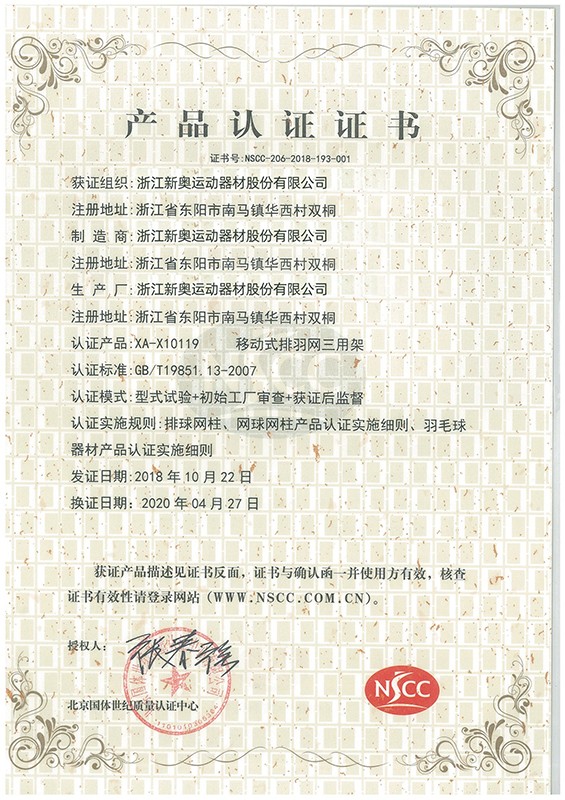 产品认证证书
证书号:NSCC-206-2018-193-001
获证组织:浙江新奥运动器材股份有限公司
注册地址:浙江省东阳市南马镇华西村双桐
制造商:浙江新奥运动器材股份有限公司
注册地址:浙江省东阳市南马镇华西村双桐
生产厂:浙江新奥运动器材股份有限公司
注册地址:浙江省东阳市南马镇华西村双桐
认证产品:XA-X10119 移动式排羽网三用架
认证标准:GB/T19851.13-2007
认证模式:型式试验+初始工厂审查+获证后监督
认证实施规则:排球网柱、网球网柱产品认证实施细则、羽毛球
器材产品认证实施细则
发证日期:2018 年 10 月 22 日
换证日期: 2020 年 04 月 27 日
获证产品描述见证书反面，证书与确认函一并使用方有效，核查
证书有效性请登录网站（WWW.NSCC.COM.CN）。
授权人:
北京国体世纪质量认证中心
NSCC